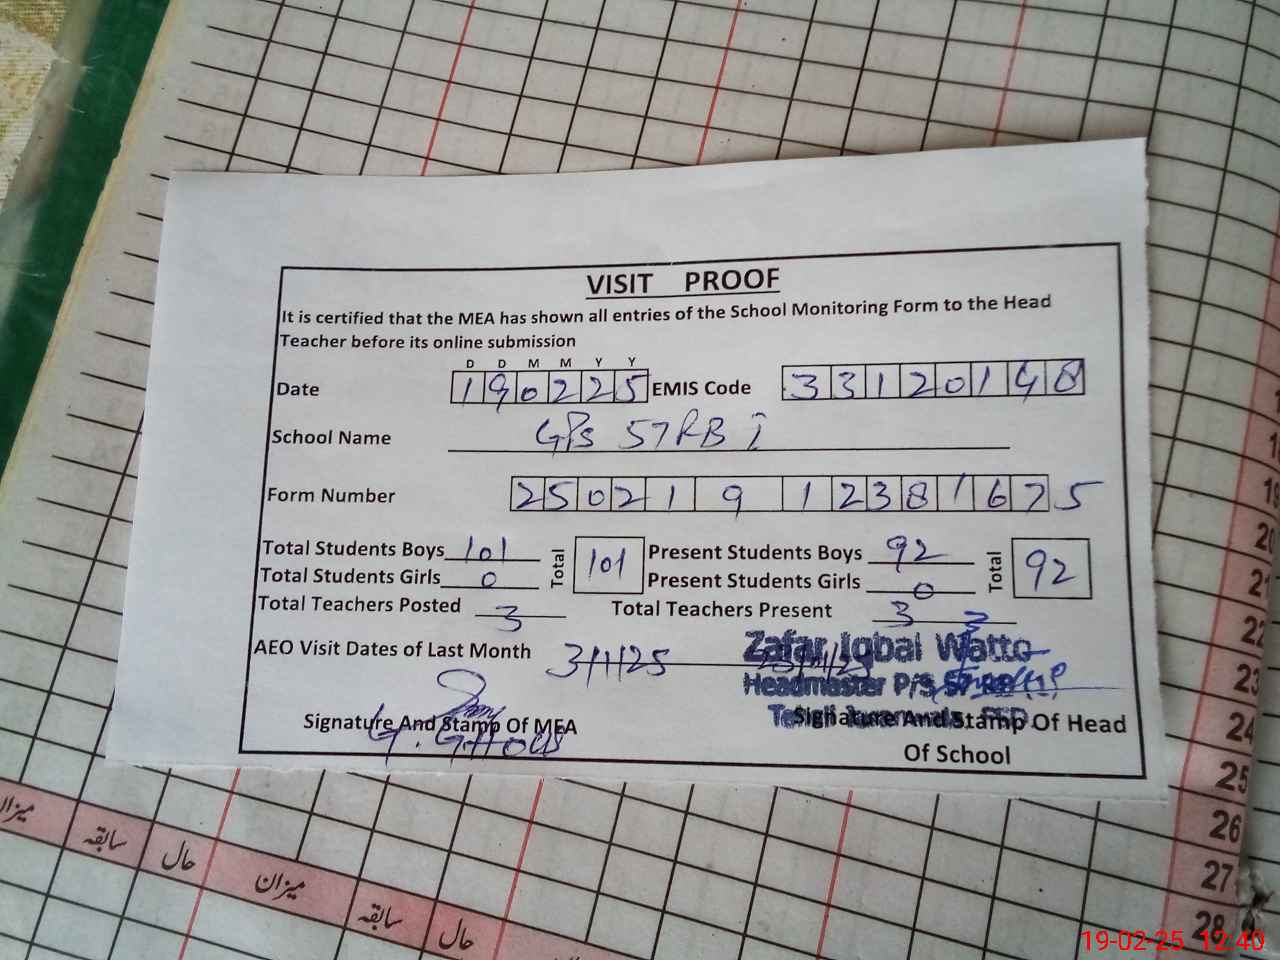 VISIT PROOF
It is certified that the MEA has shown all entries of the School Monitoring Form to the Head
Teacher before its online submission
D D M M Y Y
Date 190225 EMIS Code 33120148
School Name GPS 57RB I
Form Number 25021912381675
Total Students Boys 101 Total 101 Present Students Boys 92 Total 92
Total Students Girls 0 Present Students Girls 0
Total Teachers Posted 3 Total Teachers Present 3
AEO Visit Dates of Last Month 3/1/25
Zafar Iqbal Watto
Headmaster P/S 57
Signature And Stamp Of MEA Signature And Stamp Of Head
Of School
میزان سابقہ حال میزان سابقہ حال
20
21
22
23
24
25
26
27
28
19-02-25 12:40